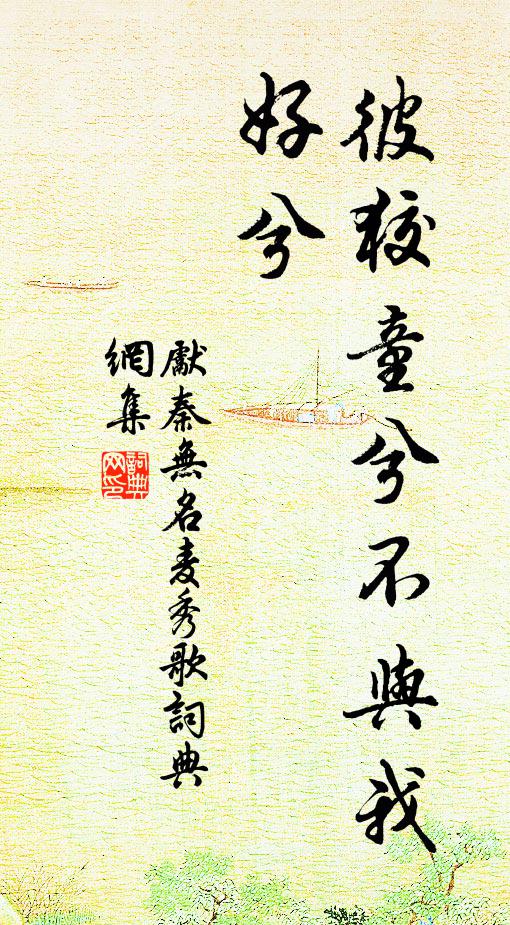 彼狡童兮不與我
好兮
獻秦無名麦秀歌詞典
網集
詞典
网印